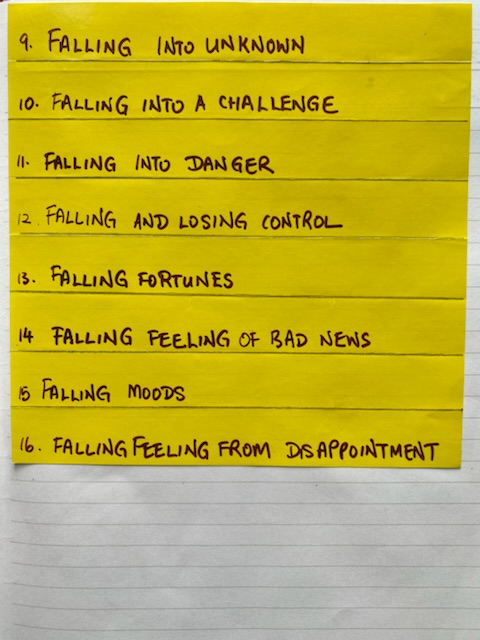 9. FALLING INTO UNKNOWN
10. FALLING INTO A CHALLENGE
11. FALLING INTO DANGER
12. FALLING AND LOSING CONTROL
13. FALLING FORTUNES
14 FALLING FEELING OF BAD NEWS
15 FALLING MOODS
16. FALLING FEELING FROM DISAPPOINTMENT